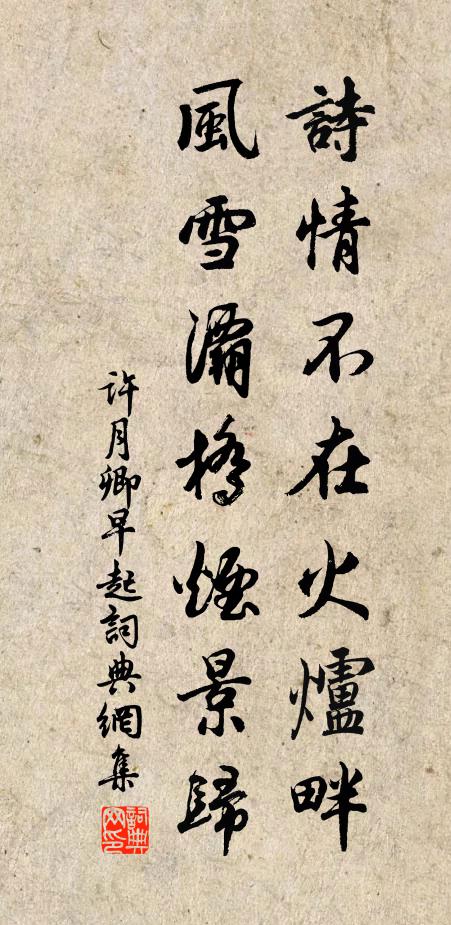 詩情不在火爐畔
風雪灞橋煙景歸
許月卿早起詞典網集
詞典網印